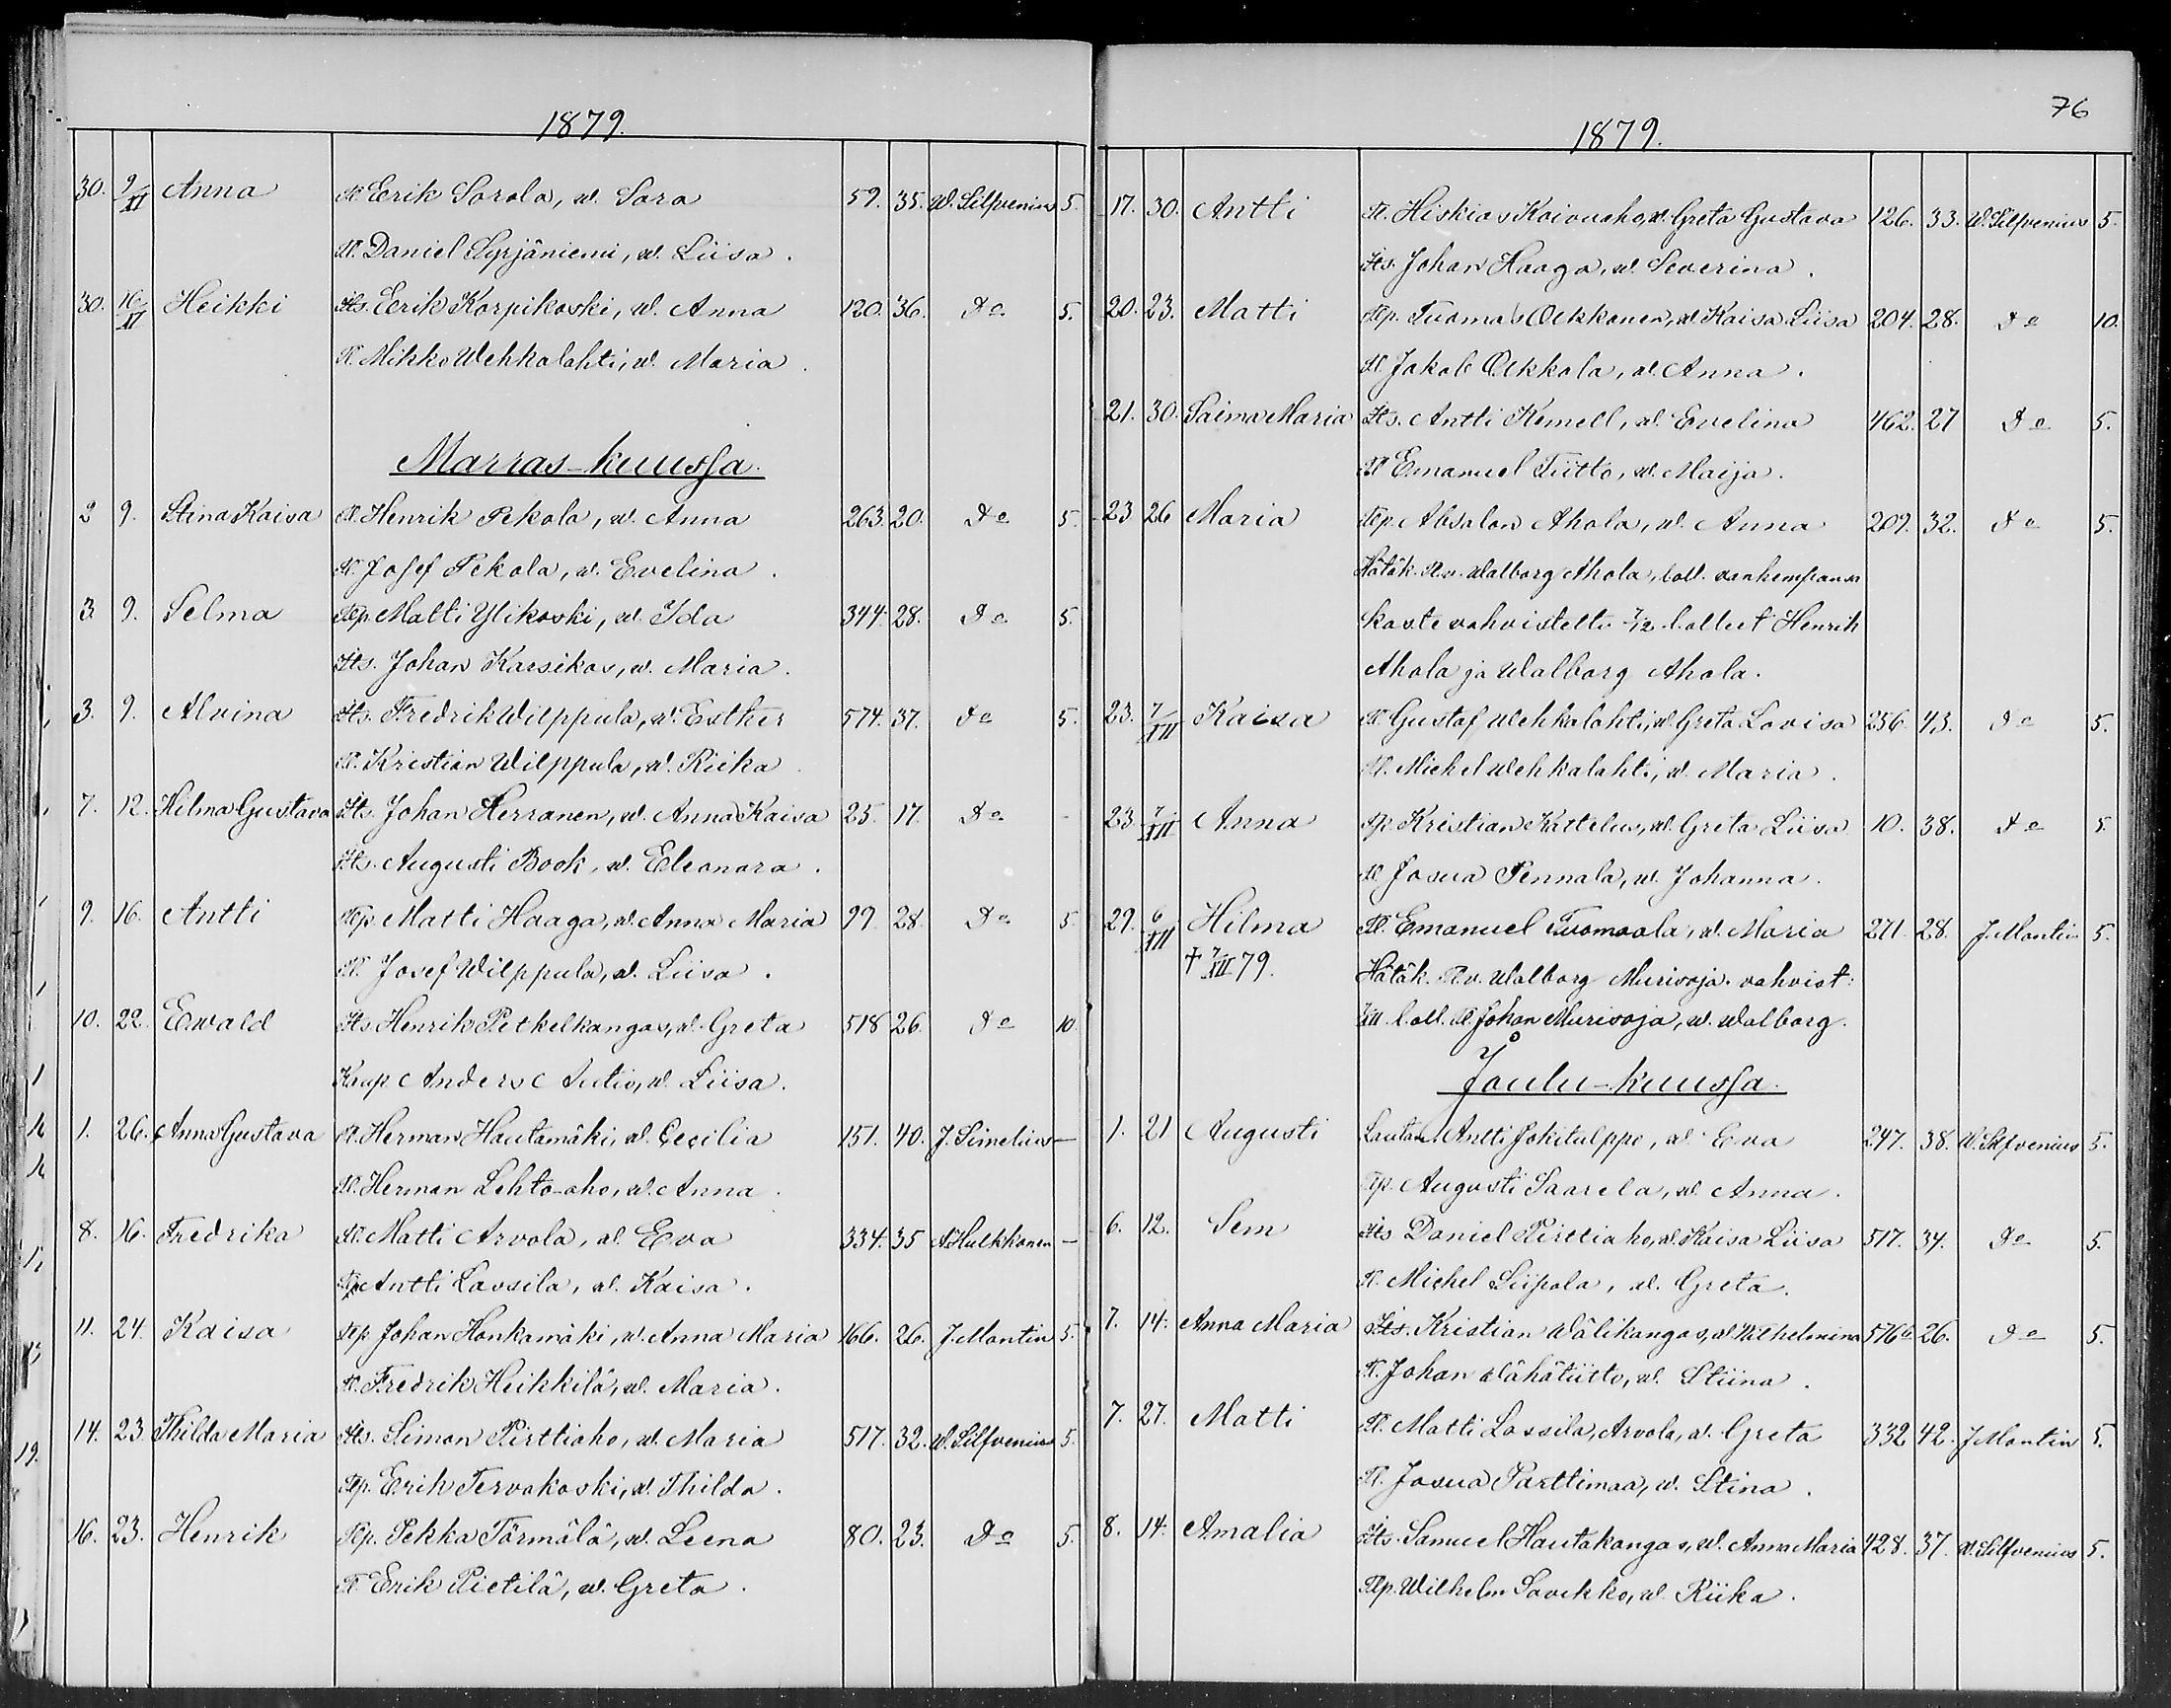 1879.
30. 9/XI Anna Tl. Eerik Sorola, w. Sara 59. 35. W. Silfvenius 5.
Tl. Daniel Syrjäniemi, w. Liisa.
30. 16/XI Heikki Its. Eerik Korpikoski, w. Anna 120. 36. Do 5.
Tl. Mikko Wehkalahti, w. Maria.
Marras-kuussa.
2 9. Stina Kaisa Tl. Henrik Pekola, w. Anna 263. 20. Do 5.
Tl. Josef Pekola, w. Evelina.
3. 9. Selma Tlp. Matti Ylikoski, w. Ida 344. 28. Do 5.
Its. Johan Karsikas, w. Maria.
3. 9. Alvina Its. Fredrik Wilppula, w. Esther 574. 37. Do 5.
Tl. Kristian Wilppula, w. Riika
7. 12. Hilma Gustava Its. Johan Herranen, w. Anna Kaisa 25. 17. Do -
Its. Augusti Book, w. Eleonora.
9. 16. Antti Tlp. Matti Haaga, w. Anna Maria 99. 28. Do 5.
Tl. Josef Wilppula, w. Liisa.
10. 22. Ewald Its. Henrik Petkelkangas, w. Greta 518 26. Do 10.
Kaup. Anders Autio, w. Liisa.
1. 26. Anna Gustava Tl. Herman Hautamäki, w. Cecilia 151. 40. J. Simelius —
Tl. Herman Lehto-aho, w. Anna.
8. 16. Fredrika Tl. Matti Arvola, w. Eva 334. 35 A. Hulkkonen —
Tlp. Antti Lassila, w. Kaisa.
11. 24. Kaisa Tlp. Johan Honkamäki, w. Anna Maria 166. 26. J. Montin 5.
Tl. Fredrik Heikkilä, w. Maria.
14. 23. Thilda Maria Its. Simon Pirttiaho, w. Maria 517. 32. W. Silfvenius 5.
Tlp. Erik Tervakoski, w. Thilda.
16. 23. Henrik Tlp. Pekka Törmälä, w. Leena 80. 23. Do 5.
Tl. Erik Pietilä, w. Greta.
76
1879.
17. 30. Antti Tl. Hiskias Koivuaho, w. Greta Gustava 126. 33. W. Silfvenius 5.
Its. Johan Haaga, w. Severina.
20. 23. Matti Tlp. Tuomas Oekkonen, w. Kaisa Liisa 204. 28. Do 10.
Tl. Jakob Oekkola, w. Anna.
21. 30. Saima Maria Its. Antti Kemell, w. Evelina 462. 27 Do 5.
Tl. Emanuel Tiitto, w. Maija.
23 26 Maria Tlp. Absalon Ahola, w. Anna 209. 32. Do 5.
Hätäk. Tl. v. Walborg Ahola, koll. vanhempansa
kaste vahvistettu 7/12 kolleet Henrik
Ahola ja Walborg Ahola.
23. 7/XII Kaisa Tl. Gustaf Wehkalahti, w. Greta Lovisa 256. 43. Do 5.
Tl. Michel Wehkalahti, w. Maria.
23 7/XII Anna Tlp. Kristian Kattelus, w. Greta Liisa 10. 38. Do 5.
Tl. Josua Pennala, w. Johanna.
29. 6/XII Hilma Tl. Emanuel Tuomaala, w. Maria 271. 28. J. Montin 5.
† 7/XII 79. Hätäk. Tl. v. Walborg Murisoja. vahvist:
koll. Tl. Johan Murisoja, w. Walborg.
Joulu-kuussa.
1. 21 Augusti Lautam. Antti Jokitulppo, w. Eva 247. 38. W. Silfvenius 5.
Tlp. Augusti Saarela, w. Anna.
6. 12. Sem Its Daniel Pirttiaho, w. Kaisa Liisa 517. 34. Do 5.
Tl. Michel Siipola, w. Greta.
7. 14. Anna Maria Its. Kristian Wälikangas, w. Wilhelmina 576 b 26. Do 5.
Tl. Johan Wähätiitto, w. Stiina.
7. 27. Matti Tl. Matti Lassila, Arvola, w. Greta 332 42. J. Montin 5.
Tl. Josua Parttimaa, w. Stina.
8. 14. Amalia Its. Samuel Hautakangas, w. Anna Maria 428. 37. W. Silfvenius 5.
Tlp. Wilhelm Savikko, w. Riika.